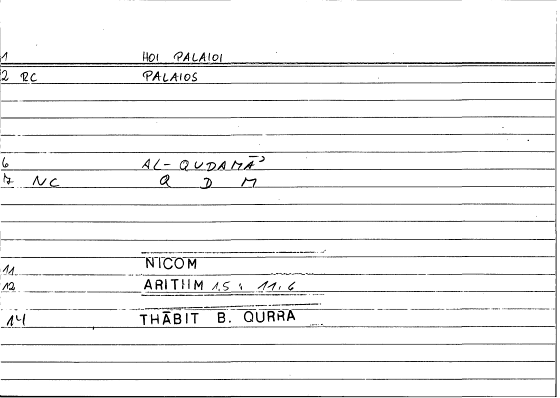 1 HOI PALAIOI
2 RC PALAIOS
6 AL-QUDAMĀʾ
7 NC Q D M
11 NICOM
12 ARITHM 1.5 : 11.6
14 THĀBIT B. QURRA